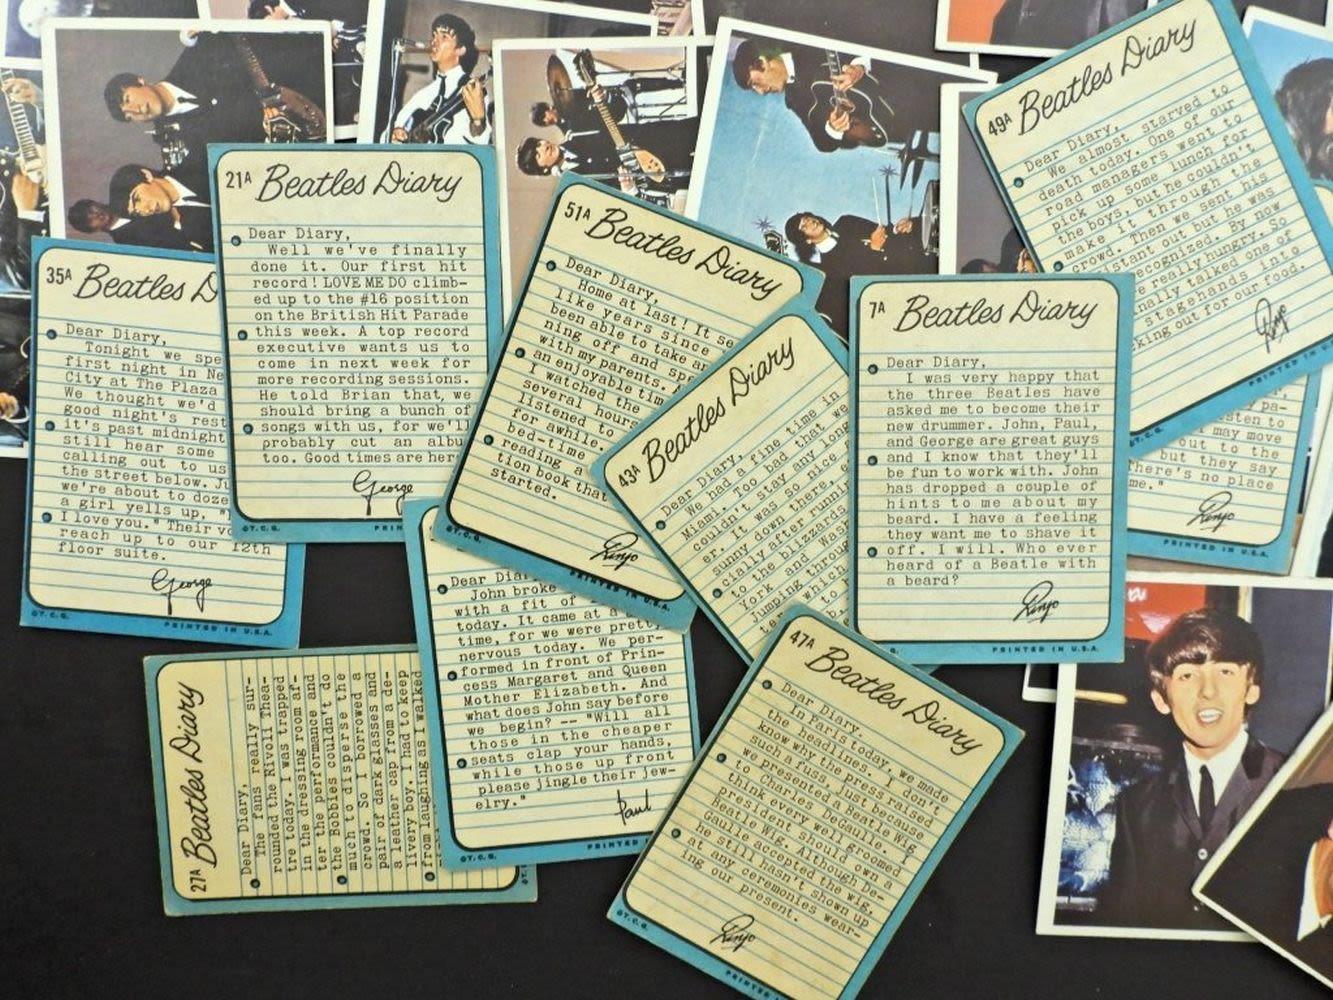 35A Beatles D
Dear Diary,
Tonight we spe
first night in Ne
City at The Plaza
We thought we'd
good night's rest
it's past midnight
still hear some
calling out to us
the street below. Ju
we're about to doze
a girl yells up, "
I love you." Their v
reach up to our 12th
floor suite.
George
©T.C.G. PRINTED IN U.S.A.
21A Beatles Diary
Dear Diary,
Well we've finally
done it. Our first hit
record! LOVE ME DO climb-
ed up to the #16 position
on the British Hit Parade
this week. A top record
executive wants us to
come in next week for
more recording sessions.
He told Brian that, we
should bring a bunch of
songs with us, for we'll
probably cut an albu
too. Good times are here
George
©T.C.G. PRIN
51A Beatles Diary
Dear Diary,
Home at last! It se
like years since
been able to take an
ning off and spe
with my parents.
an enjoyable tim
I watched the
several hours
listened to
for awhile.
bed-time
reading a
tion book that
started.
Ringo
©T.C.G. PRINTED IN U.S.A.
43A Beatles Diary
Dear Diary,
We had a fine time in
Miami. Too bad that we
couldn't stay any long
er. It was so nice
sunny down there, e
cially after runni
to the blizzards
York and Wash
Jumping throug
ter which
b,
7A Beatles Diary
Dear Diary,
I was very happy that
the three Beatles have
asked me to become their
new drummer. John, Paul,
and George are great guys
and I know that they'll
be fun to work with. John
has dropped a couple of
hints to me about my
beard. I have a feeling
they want me to shave it
off. I will. Who ever
heard of a Beatle with
a beard?
Ringo
PRINTED IN U.S.A.
49A Beatles Diary
Dear Diary,
We almost starved to
death today. One of our
road managers went to
pick up some lunch for
the boys, but he couldn't
make it through the
crowd. Then we sent his
istant out but he was
recognized. By now
e really hungry. So
nally talked one of
stagehands into
king out for our food.
Ringo
PRINTED IN U.S.
T.C.G.
pa-
sten to
may move
out to the
but they say
There's no place
me."
Ringo
PRINTED IN U.S.A.
27A Beatles Diary
Dear Diary,
The fans really sur-
rounded the Rivoli Thea-
tre today. I was trapped
in the dressing room af-
ter the performance and
the Bobbies couldn't do
much to disperse the
crowd. So I borrowed a
pair of dark glasses and
a leather cap from a de-
livery boy. I had to keep
from laughing as I walked
Dear Dia
John broke
with a fit of
today. It came at a
time, for we were pretty
nervous today. We per-
formed in front of Prin-
cess Margaret and Queen
Mother Elizabeth. And
what does John say before
we begin? -- "Will all
those in the cheaper
seats clap your hands,
while those up front
please jingle their jew-
elry."
Paul
©T.C.G. PRINTED
47A Beatles Diary
Dear Diary.
In Paris today, we made
the headlines. I don't
know why the press raised
such a fuss, just because
we presented a Beatle Wig
to Charles DeGaulle. I
think every well groomed
president should own a
Beatle Wig. Although De-
Gaulle accepted the wig,
he still hasn't shown up
at any ceremonies wear-
ing our present.
Ringo
©T.C.G. PRINTED IN U.S.A.